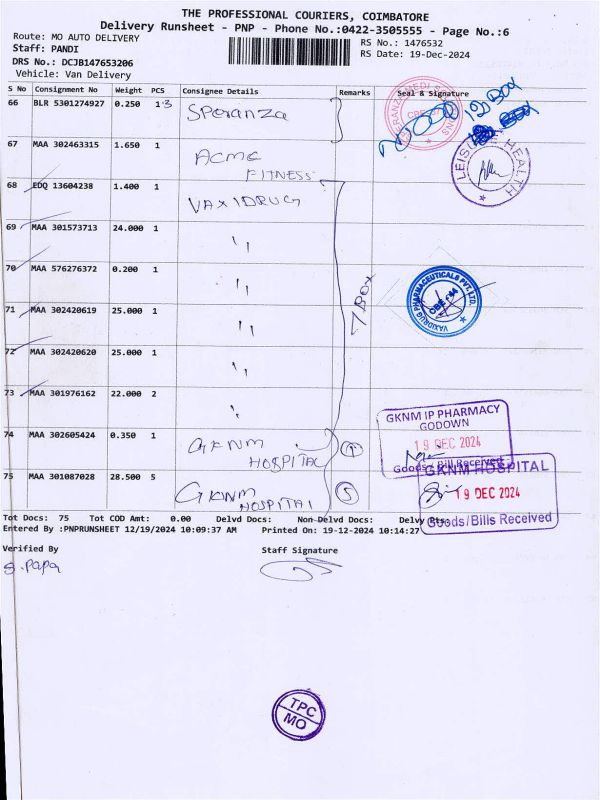 THE PROFESSIONAL COURIERS, COIMBATORE
Delivery Runsheet - PNP - Phone No.:0422-3505555 - Page No.:6
Route: MO AUTO DELIVERY
RS No.: 1476532
Staff: PANDI
RS Date: 19-Dec-2024
DRS No.: DCJB147653206
Vehicle: Van Delivery
S No Consignment No Weight PCS Consignee Details Remarks Seal & Signature
66 BLR 5301274927 0.250 13 Speranza
13 BOX
67 MAA 302463315 1.650 1 ACME
FITNESS
LEISURE HEALTH
68 EDQ 13604238 1.400 1 VAXIDRUG
69 MAA 301573713 24.000 1 ''
70 MAA 576276372 0.200 1 ''
7 BOX
VAXIDRUG PHARMACEUTICALS PVT. LTD.
71 MAA 302420619 25.000 1 ''
72 MAA 302420620 25.000 1 ''
73 MAA 301976162 22.000 2 ''
74 MAA 302605424 0.350 1 GKNM
HOSPITAL 1
GKNM IP PHARMACY
GODOWN
19 DEC 2024
Goods / Bill Received
75 MAA 301087028 28.500 5 GKNM
HOSPITAL 5
GKNM HOSPITAL
19 DEC 2024
Goods/Bills Received
Tot Docs: 75 Tot COD Amt: 0.00 Delvd Docs: Non-Delvd Docs: Delvy
Entered By :PNPRUNSHEET 12/19/2024 10:09:37 AM Printed On: 19-12-2024 10:14:27
Verified By Staff Signature
S. Papa
TPC
MO